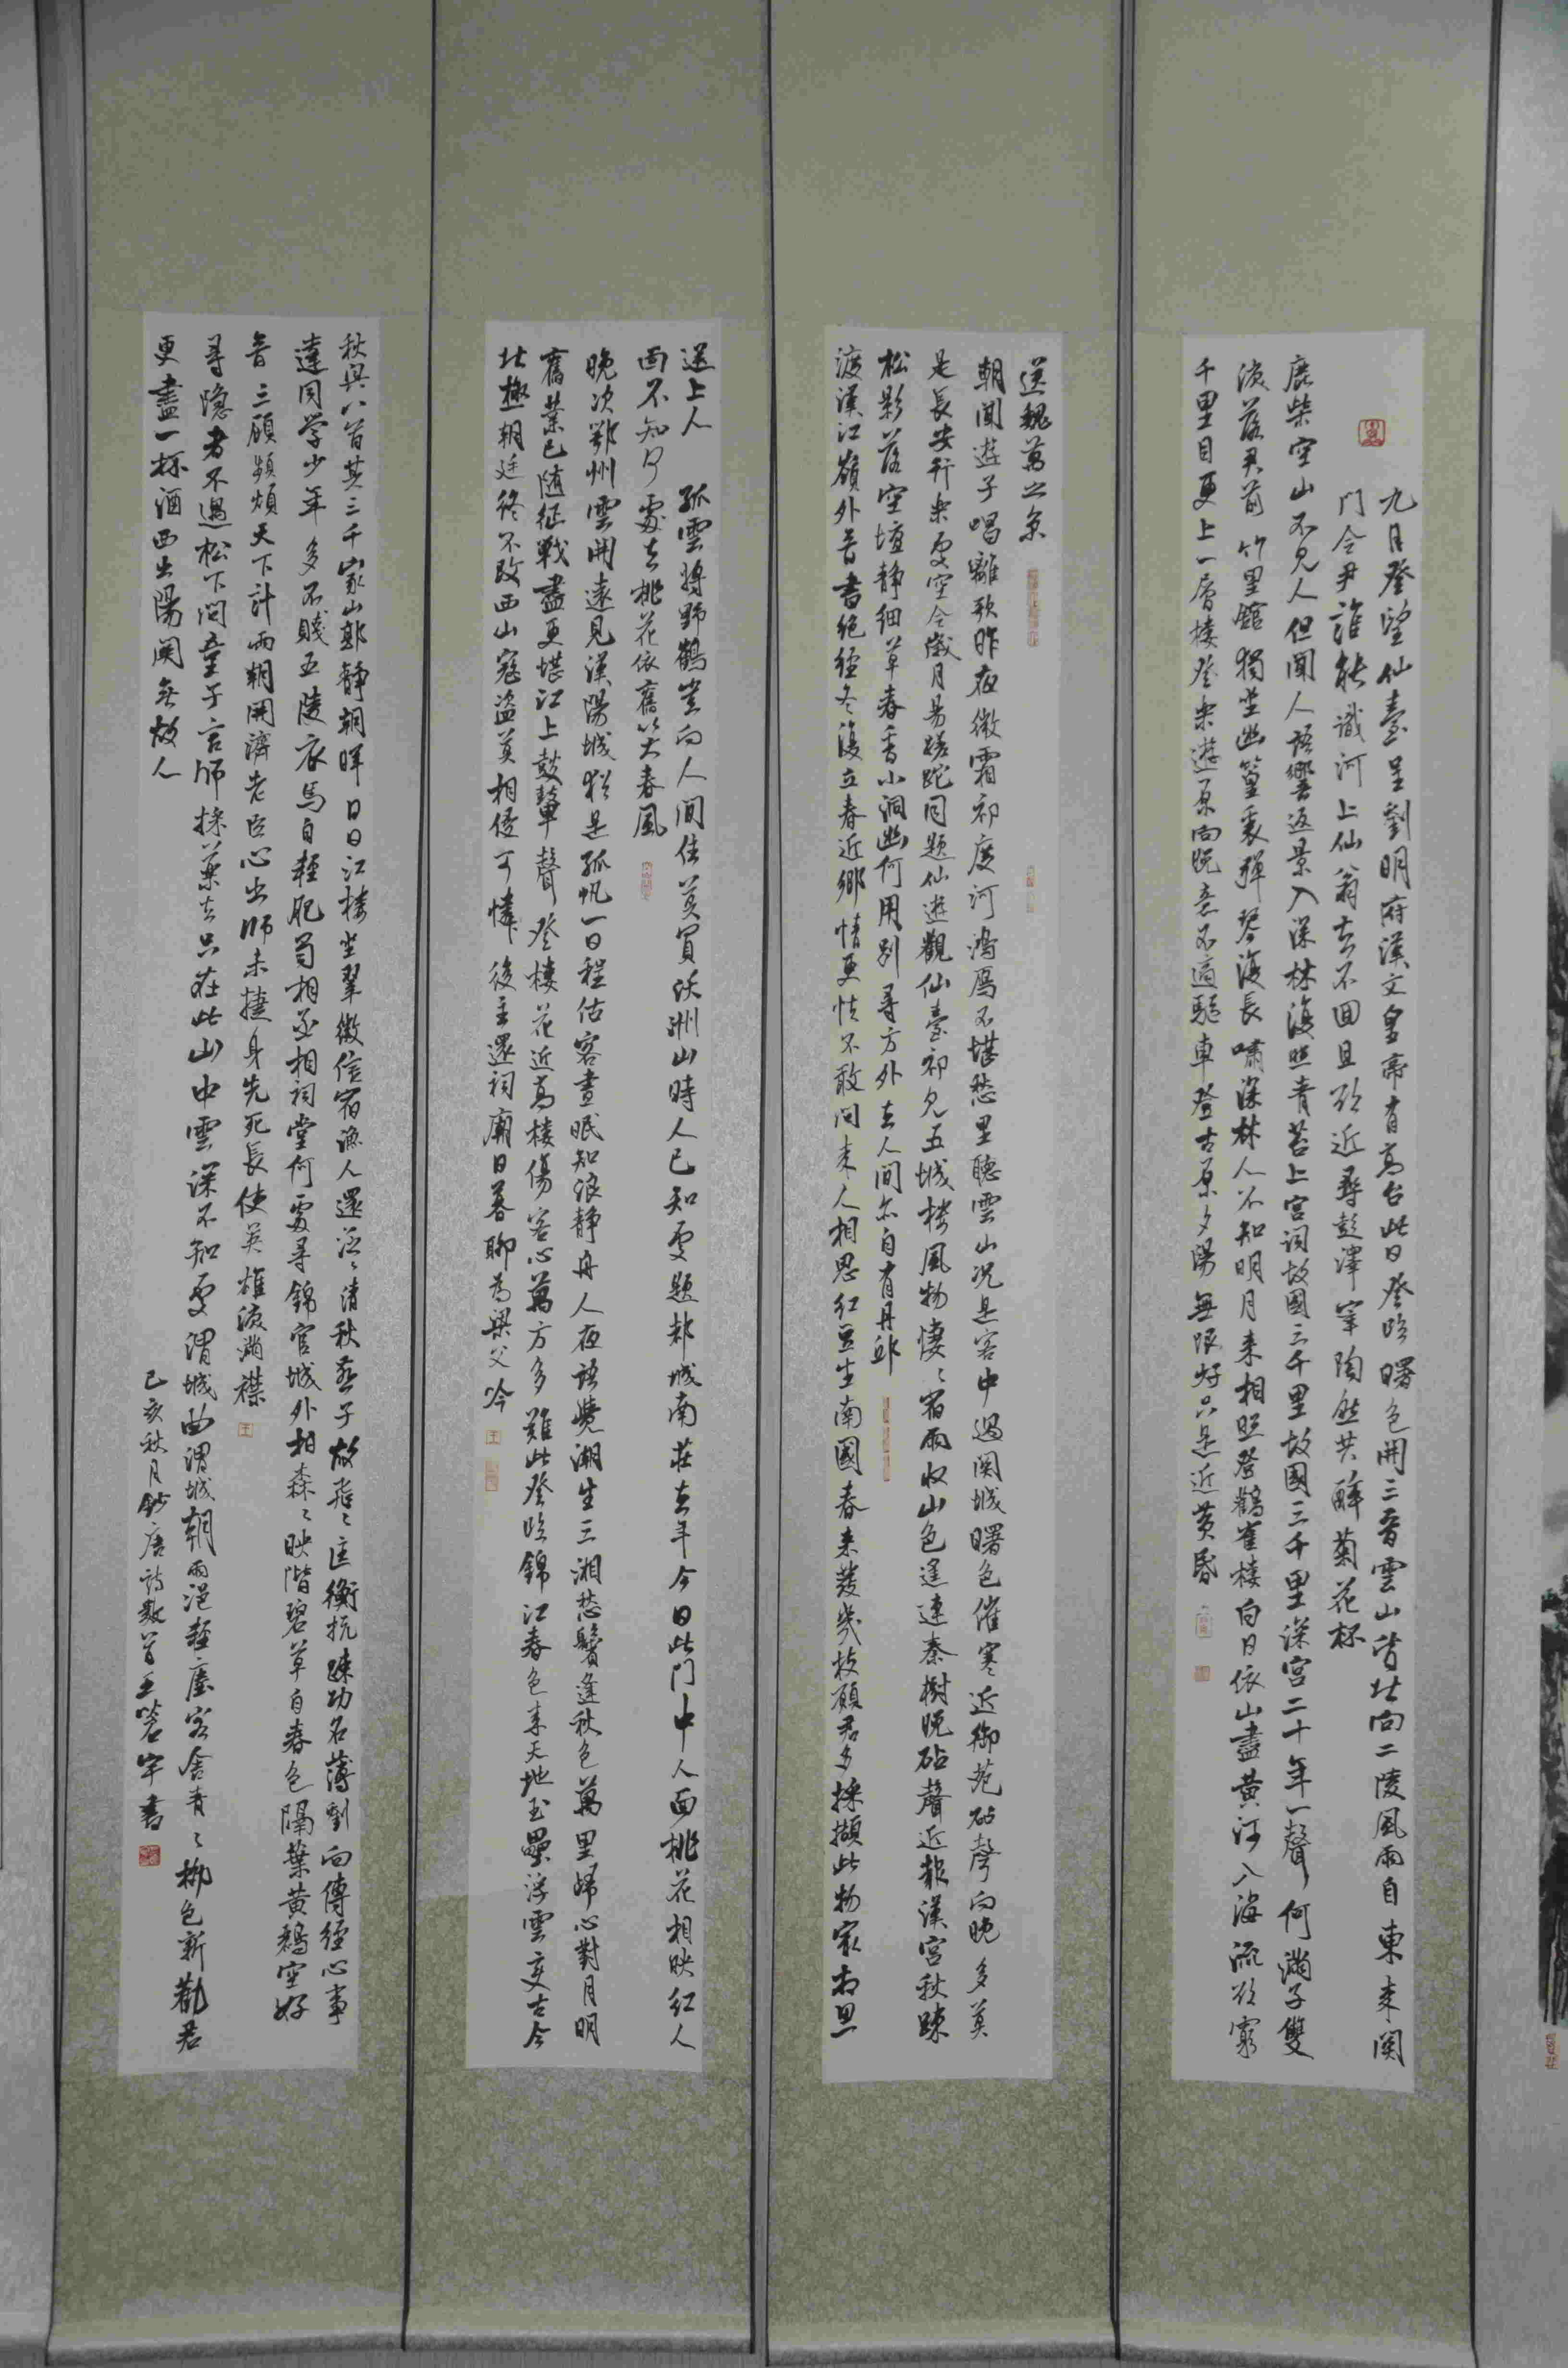 九月登望仙臺呈劉明府漢文皇帝有高台此日登臨曙色開三晉雲山皆北向二陵風雨自東来関
门令尹誰能識河上仙翁去不回且欲近尋彭澤宰陶然共醉菊花杯
鹿柴空山不見人但聞人語響返景入深林復照青苔上宮詞故國三千里故國三千里深宮二十年一聲何滿子雙
淚落君前竹里館獨坐幽篁裏彈琴復長嘯深林人不知明月来相照登鸛雀樓白日依山盡黄河入海流欲窮
千里目更上一層樓登樂遊原向晚意不適驅車登古原夕陽無限好只是近黄昏
送魏萬之京
朝聞遊子唱離歌昨夜微霜初度河鴻雁不堪愁里聽雲山况是客中過関城曙色催寒近御苑砧聲向晚多莫
是長安行樂處空令歲月易蹉跎同題仙遊觀仙臺初見五城樓風物悽〻宿雨收山色遙連秦樹晚砧聲近報漢宮秋疎
松影落空壇靜細草春香小洞幽何用别尋方外去人間亦自有丹邱
渡漢江嶺外音書絶經冬復立春近鄉情更怯不敢问来人相思红豆生南國春来發幾枝願君多採擷此物最相思
送上人 孤雲將野鶴豈向人間住莫買沃洲山時人已知處題都城南莊去年今日此门中人面桃花相映红人
面不知何處去桃花依舊笑春風
晚次鄂州雲開遠見漢陽城猶是孤帆一日程估客晝眠知浪靜舟人夜語覺潮生三湘愁鬢逢秋色萬里歸心對月明
舊業已随征戰盡更堪江上鼓鼙聲登樓花近高樓傷客心萬方多難此登臨錦江春色来天地玉壘浮雲变古今
北極朝廷終不改西山寇盗莫相侵可憐後主還祠廟日暮聊為梁父吟
秋興八首其三千家山郭靜朝暉日日江樓坐翠微信宿漁人還泛〻清秋燕子故飛〻匡衡抗疎功名薄劉向傳經心事
違同学少年多不賤五陵衣馬自輕肥蜀相丞相祠堂何處尋錦官城外柏森〻映階碧草自春色隔葉黄鸝空好
音三顾頻煩天下計兩朝開濟老臣心出师未捷身先死長使英雄淚滿襟
尋隐者不遇松下问童子言师採藥去只在此山中雲深不知處渭城曲渭城朝雨浥輕塵客舍青〻柳色新勸君
更盡一杯酒西出陽関無故人
己亥秋月鈔唐詩數首王